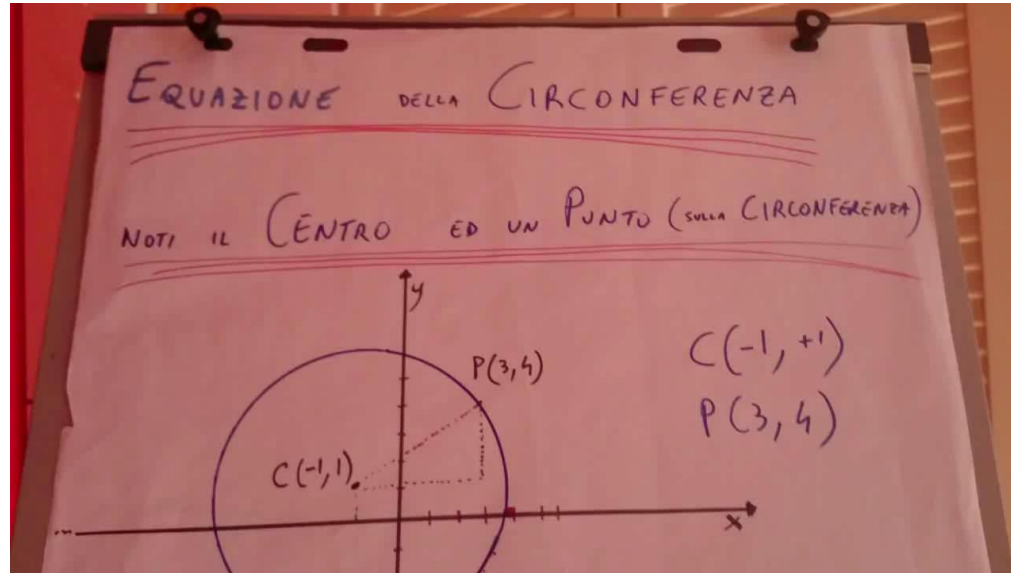 EQUAZIONE DELLA CIRCONFERENZA
NOTI IL CENTRO ED UN PUNTO (SULLA CIRCONFERENZA)
y
P(3,4)
C(-1,+1)
P(3,4)
C(-1,1)
x